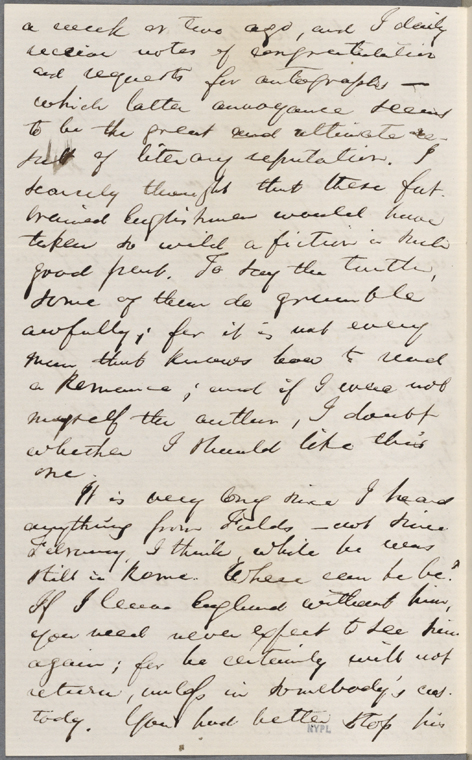 a week or two ago, and I daily
receive notes of congratulation
and requests for autographs —
which latter annoyance seems
to be the great and ultimate re-
sult of literary reputation. I
scarcely thought that these fat-
brained Englishmen would have
taken so wild a fiction in such
good part. To say the truth,
some of them do grumble
awfully; for it is not every
man that knows how to read
a Romance; and if I were not
myself the author, I doubt
whether I should like this
one.
It is very long since I heard
anything from Fields — not since
February, I think, while he was
still in Rome. Where can he be?
If I leave England without him,
you need never expect to see him
again; for he certainly will not
return, unless in somebody's cus-
tody. You had better stop his
NYPL